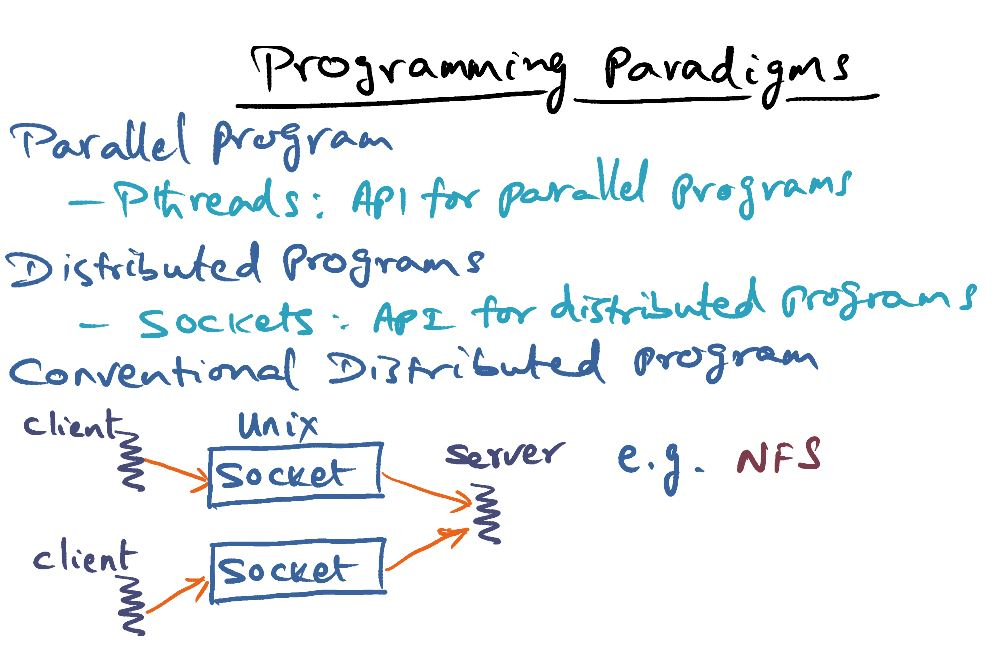 Programming Paradigms
Parallel program
- Pthreads: API for parallel programs
Distributed Programs
- Sockets: API for distributed programs
Conventional Distributed program
client
Unix
Socket
server
e.g. NFS
client
Socket